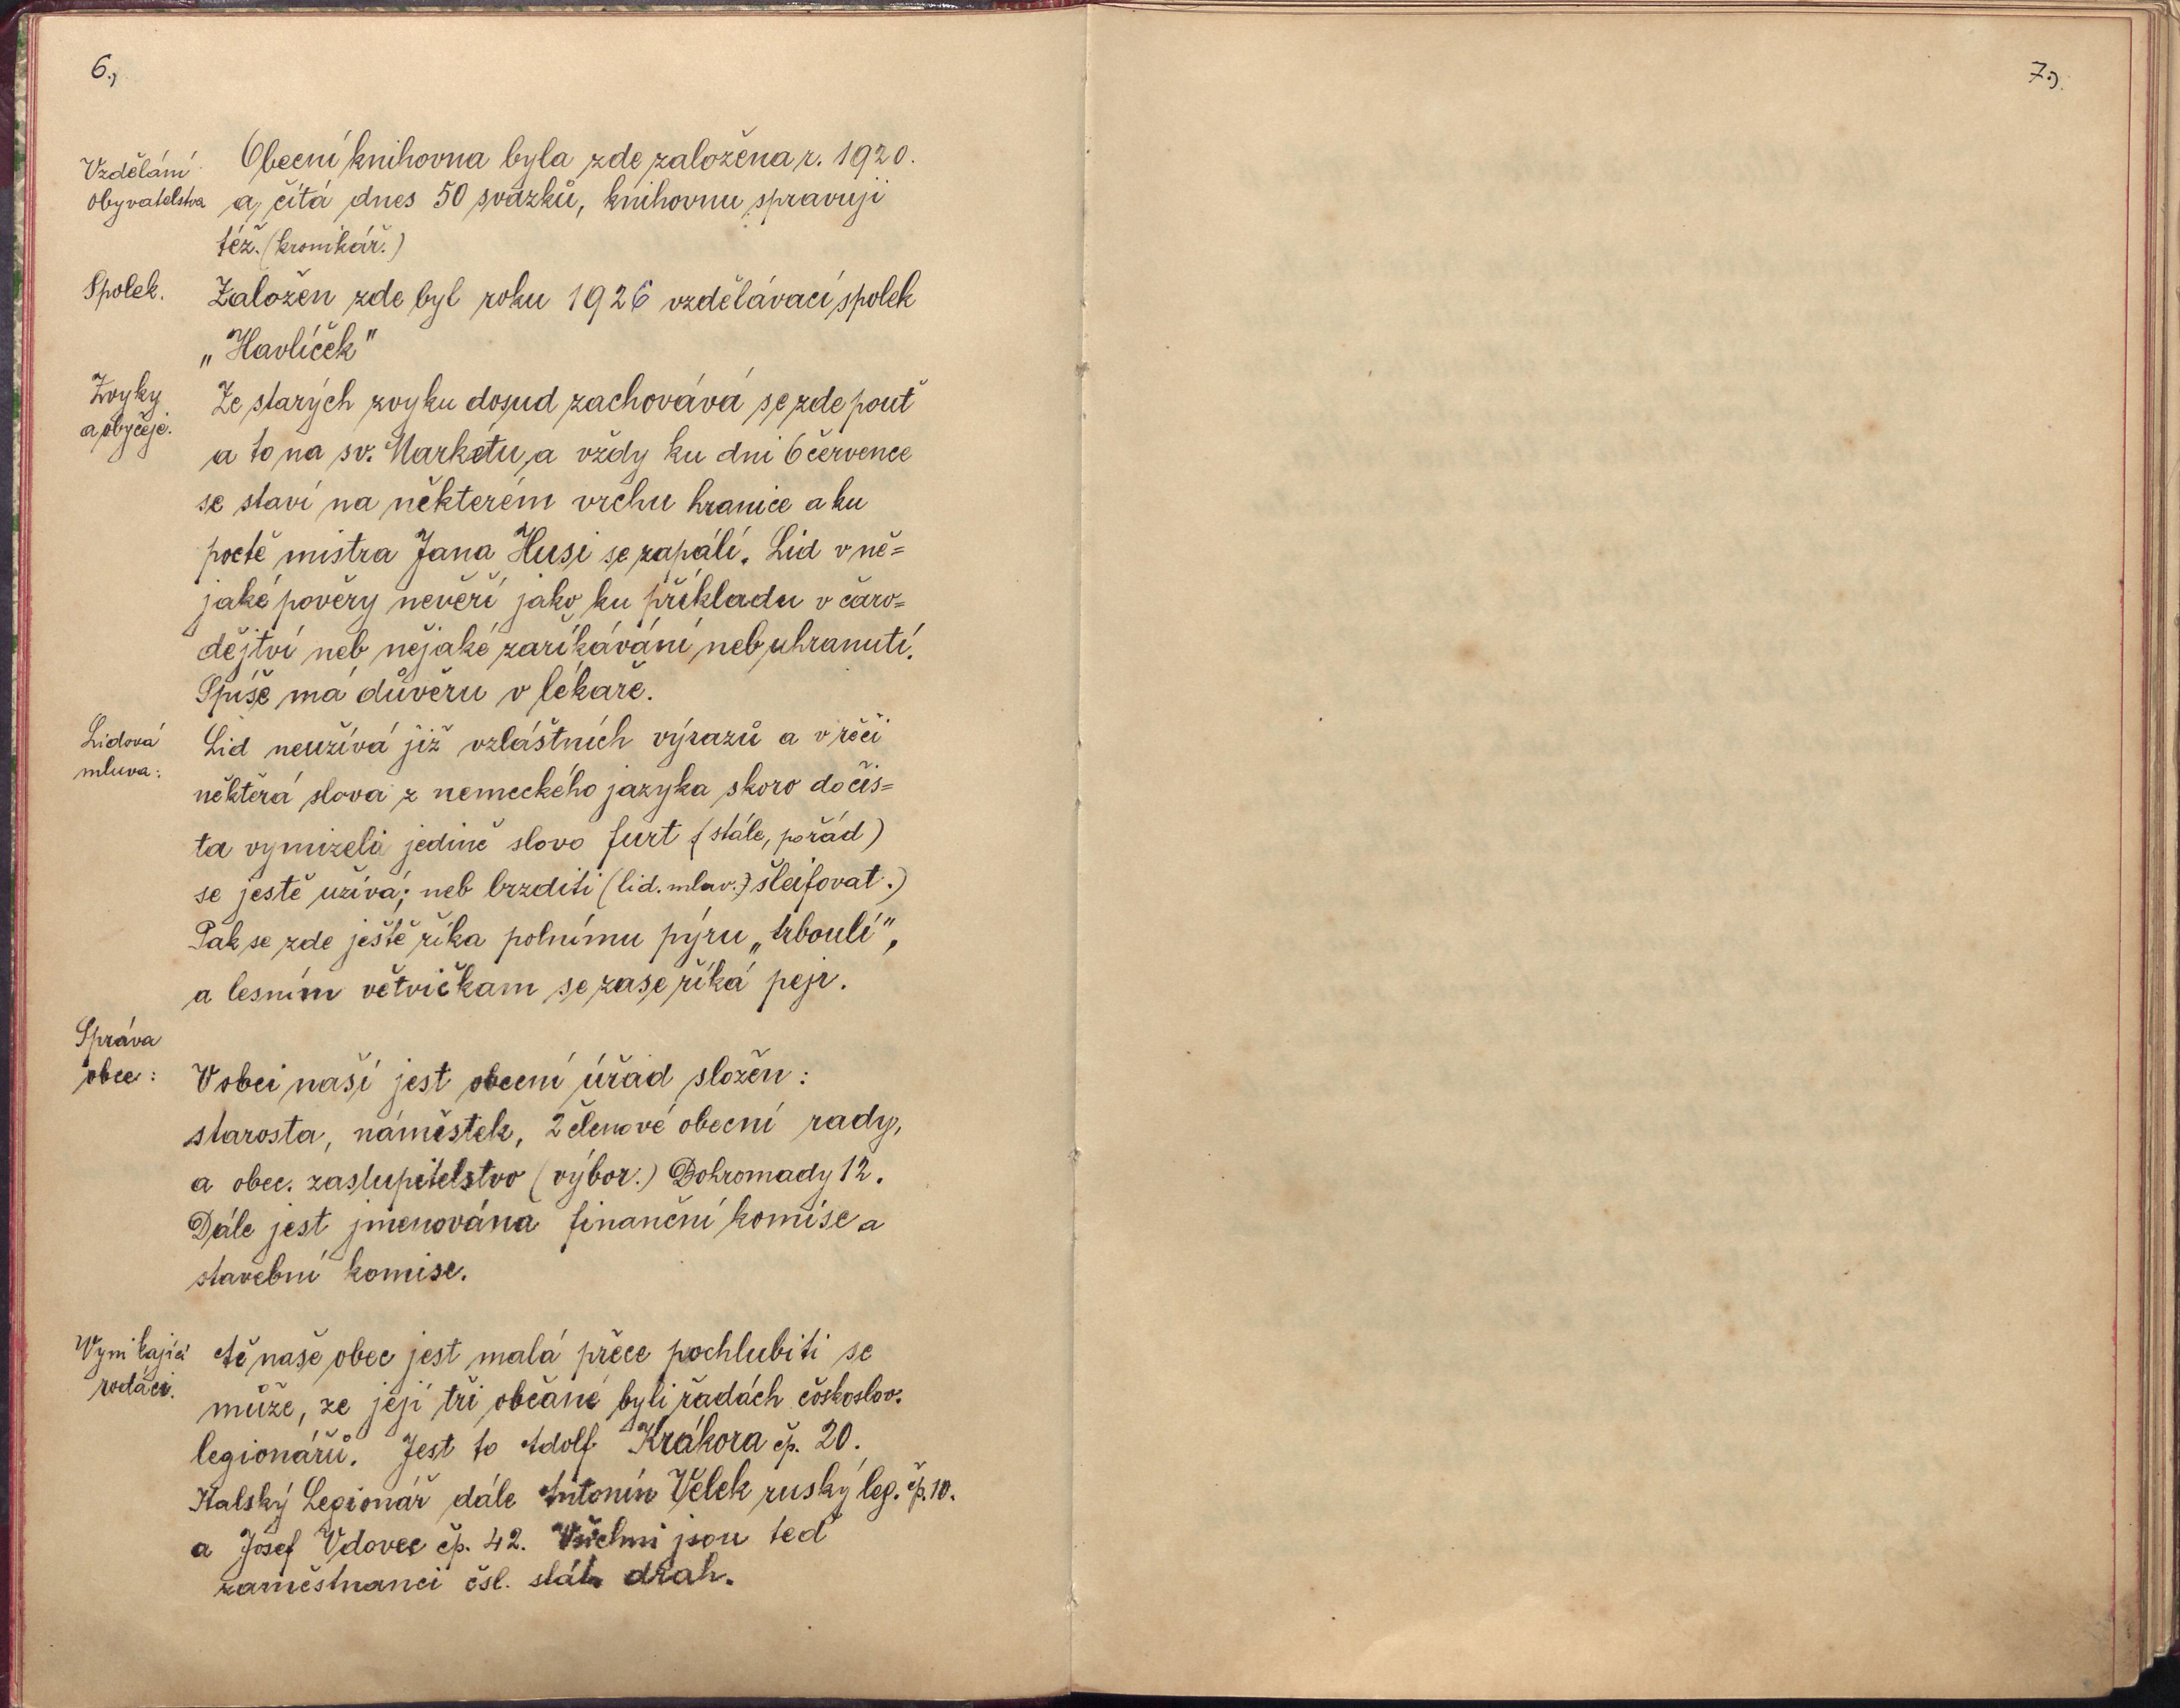 6.,
Vzdělání
obyvatelstva
Obecní knihovna byla zde založena r. 1920.
a čítá dnes 50 svazků, knihovnu spravuji
též. (kronikář.)
Spolek.
Založen zde byl roku 1926 vzdělávací spolek
„Havlíček"
Zvyky
a obyčeje.
Ze starých zvyku dosud zachovává se zde pouť
a to na sv. Markétu, a vždy ku dni 6 července
se staví na některém vrchu hranice a ku
poctě mistra Jana Husi se zapálí. Lid v ně=
jaké pověry nevěří jako ku příkladu v čaro=
dějtví neb nějaké zaříkávání neb uhranutí.
Spíše má důvěru v lékaře.
Lidová
mluva:
Lid neužívá již vzláštních výrazů a v řeči
některá slova z nemeckého jazyka skoro dočis=
ta vymizela jedině slovo furt (stále, pořád)
se jestě užívá; neb brzditi (lid. mluv.) šleifovat.)
Pak se zde ještě říka polnímu pýru „trboulí",
a lesním větvičkam se zase říká pejr.
Správa
obce:
V obci naší jest obecní úřad složen:
starosta, náměstek, 2 členové obecní rady,
a obec. zastupitelstvo (výbor.) Dohromady 12.
Dále jest jmenována finanční komise a
stavební komise.
Vynikající
rodáci.
Ač naše obec jest malá přece pochlubiti se
může, ze její tři občané byli řadách čoskoslov.
legionářů. Jest to Adolf Krákora čp. 20.
Italský Legionář dále Antonín Vélek ruský leg. čp. 10.
a Josef Vdovec čp. 42. Všichni jsou teď
zaměstnanci čsl. stát. drah.
7.).